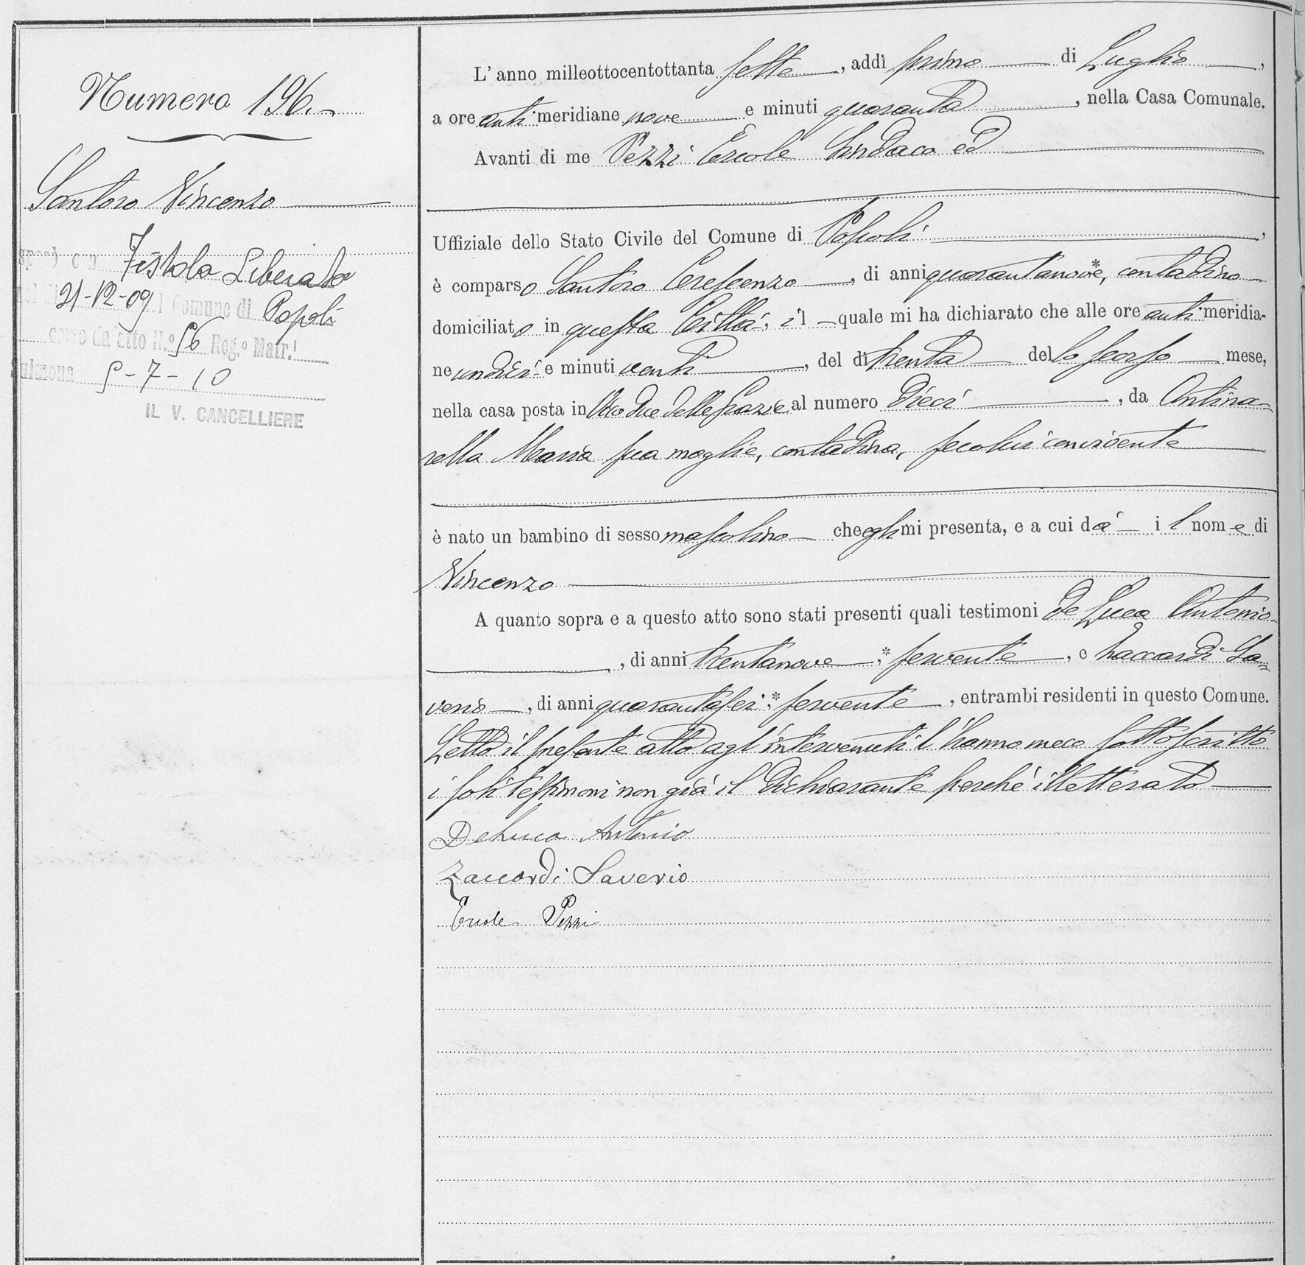 Numero 196
Santoro Vincenzo
sposò con Fistola Liberata
21-12-09 Comune di Popoli
come da atto N.º 56 Reg.º Matr.i
Sulmona 5-7-10
IL V. CANCELLIERE
L'anno milleottocentottanta sette, addì primo di Luglio,
a ore anti meridiane nove e minuti quaranta, nella Casa Comunale.
Avanti di me Pezzi Ercole Sindaco ed
Uffiziale dello Stato Civile del Comune di Popoli,
è comparso Santoro Crescenzo, di anni quarantanove*, contadino
domiciliato in questa Città, il quale mi ha dichiarato che alle ore anti meridia-
ne undici e minuti venti, del dì trenta dello scorso mese,
nella casa posta in Vico due delle Grazie al numero dieci, da Antina-
rella Maria sua moglie, contadina, secolui convivente
è nato un bambino di sesso mascolino che egli mi presenta, e a cui dà il nome di
Vincenzo
A quanto sopra e a questo atto sono stati presenti quali testimoni de Luca Antonio
, di anni trentanove,* servente, e Zaccardi Sa-
verio, di anni quarantasei,* servente, entrambi residenti in questo Comune.
Letto il presente atto agl'intervenuti l'hanno meco sottoscritto
i soli testimoni non già il dichiarante perché illetterato
De Luca Antonio
Zaccardi Saverio
Ercole Pezzi